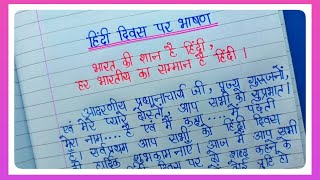 हिंदी दिवस पर भाषण
भारत की शान है हिंदी,
हर भारतीय का सम्मान है हिंदी।
आदरणीय प्रधानाचार्य जी, पूज्य गुरुजनों,
एवं मेरे प्यारे दोस्तों, आप सभी को सुप्रभात।
मेरा नाम...है एवं मैं कक्षा....में पढ़ती
हूँ। सर्वप्रथम आप सभी को हिंदी दिवस
की हार्दिक शुभकामनाएं। आज मैं आप सभी
दिवस पर दो शब्द कहने के